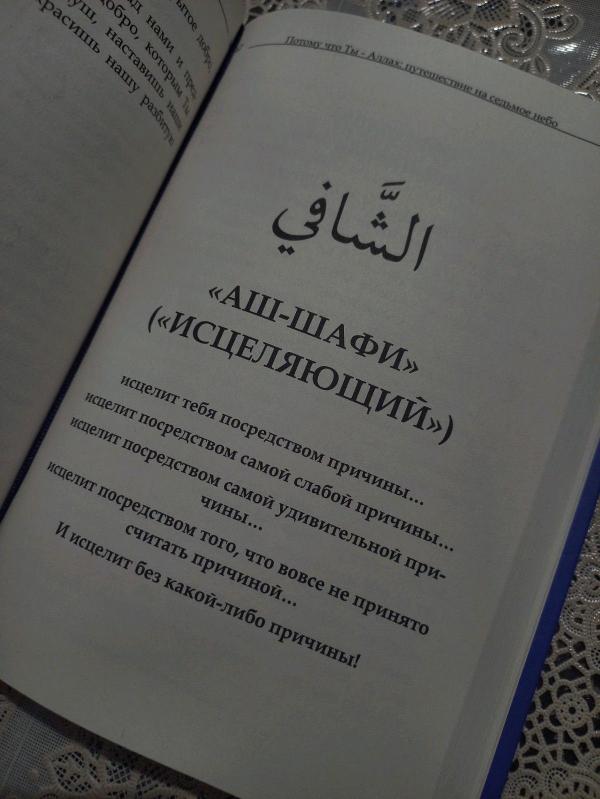 ытое добро,
ед нами и пред
добро, которым Ты
уш, наставишь наши
красишь нашу разбитую
Потому что Ты - Аллах: путешествие на седьмое небо
الشَّافي
«АШ-ШАФИ»
(«ИСЦЕЛЯЮЩИЙ»)
исцелит тебя посредством причины...
исцелит посредством самой слабой причины...
исцелит посредством самой удивительной при-
чины...
исцелит посредством того, что вовсе не принято
считать причиной...
И исцелит без какой-либо причины!